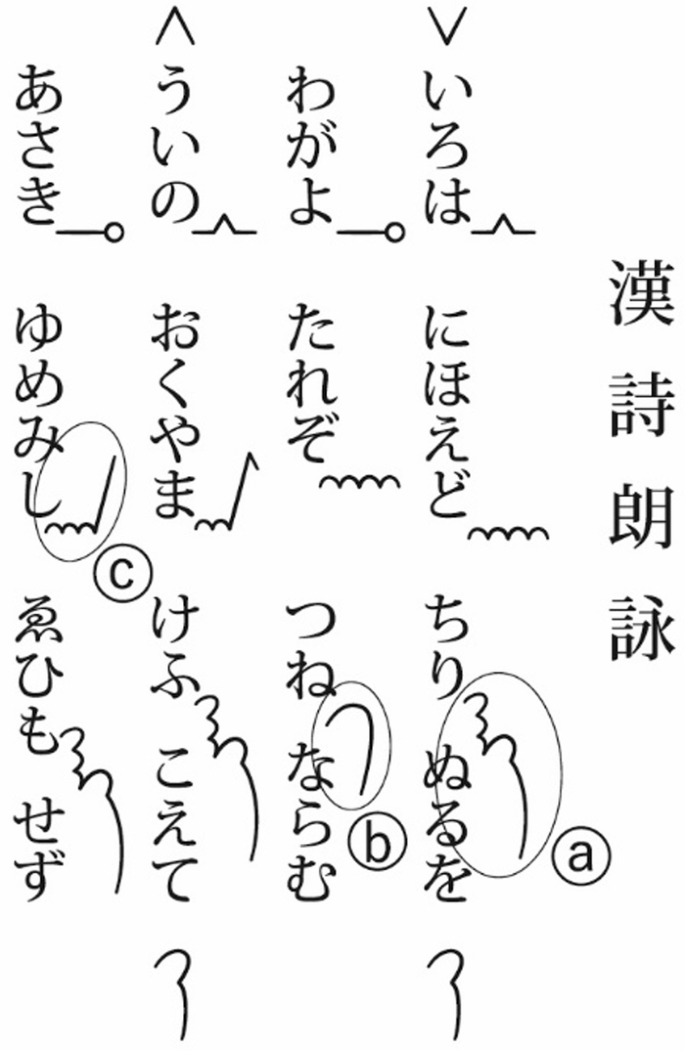 漢詩朗詠
いろは にほえど ちり ぬるを
わがよ たれぞ つね ならむ
ういの おくやま けふ こえて
あさき ゆめみし ゑひも せず
ⓐ
ⓑ
ⓒ